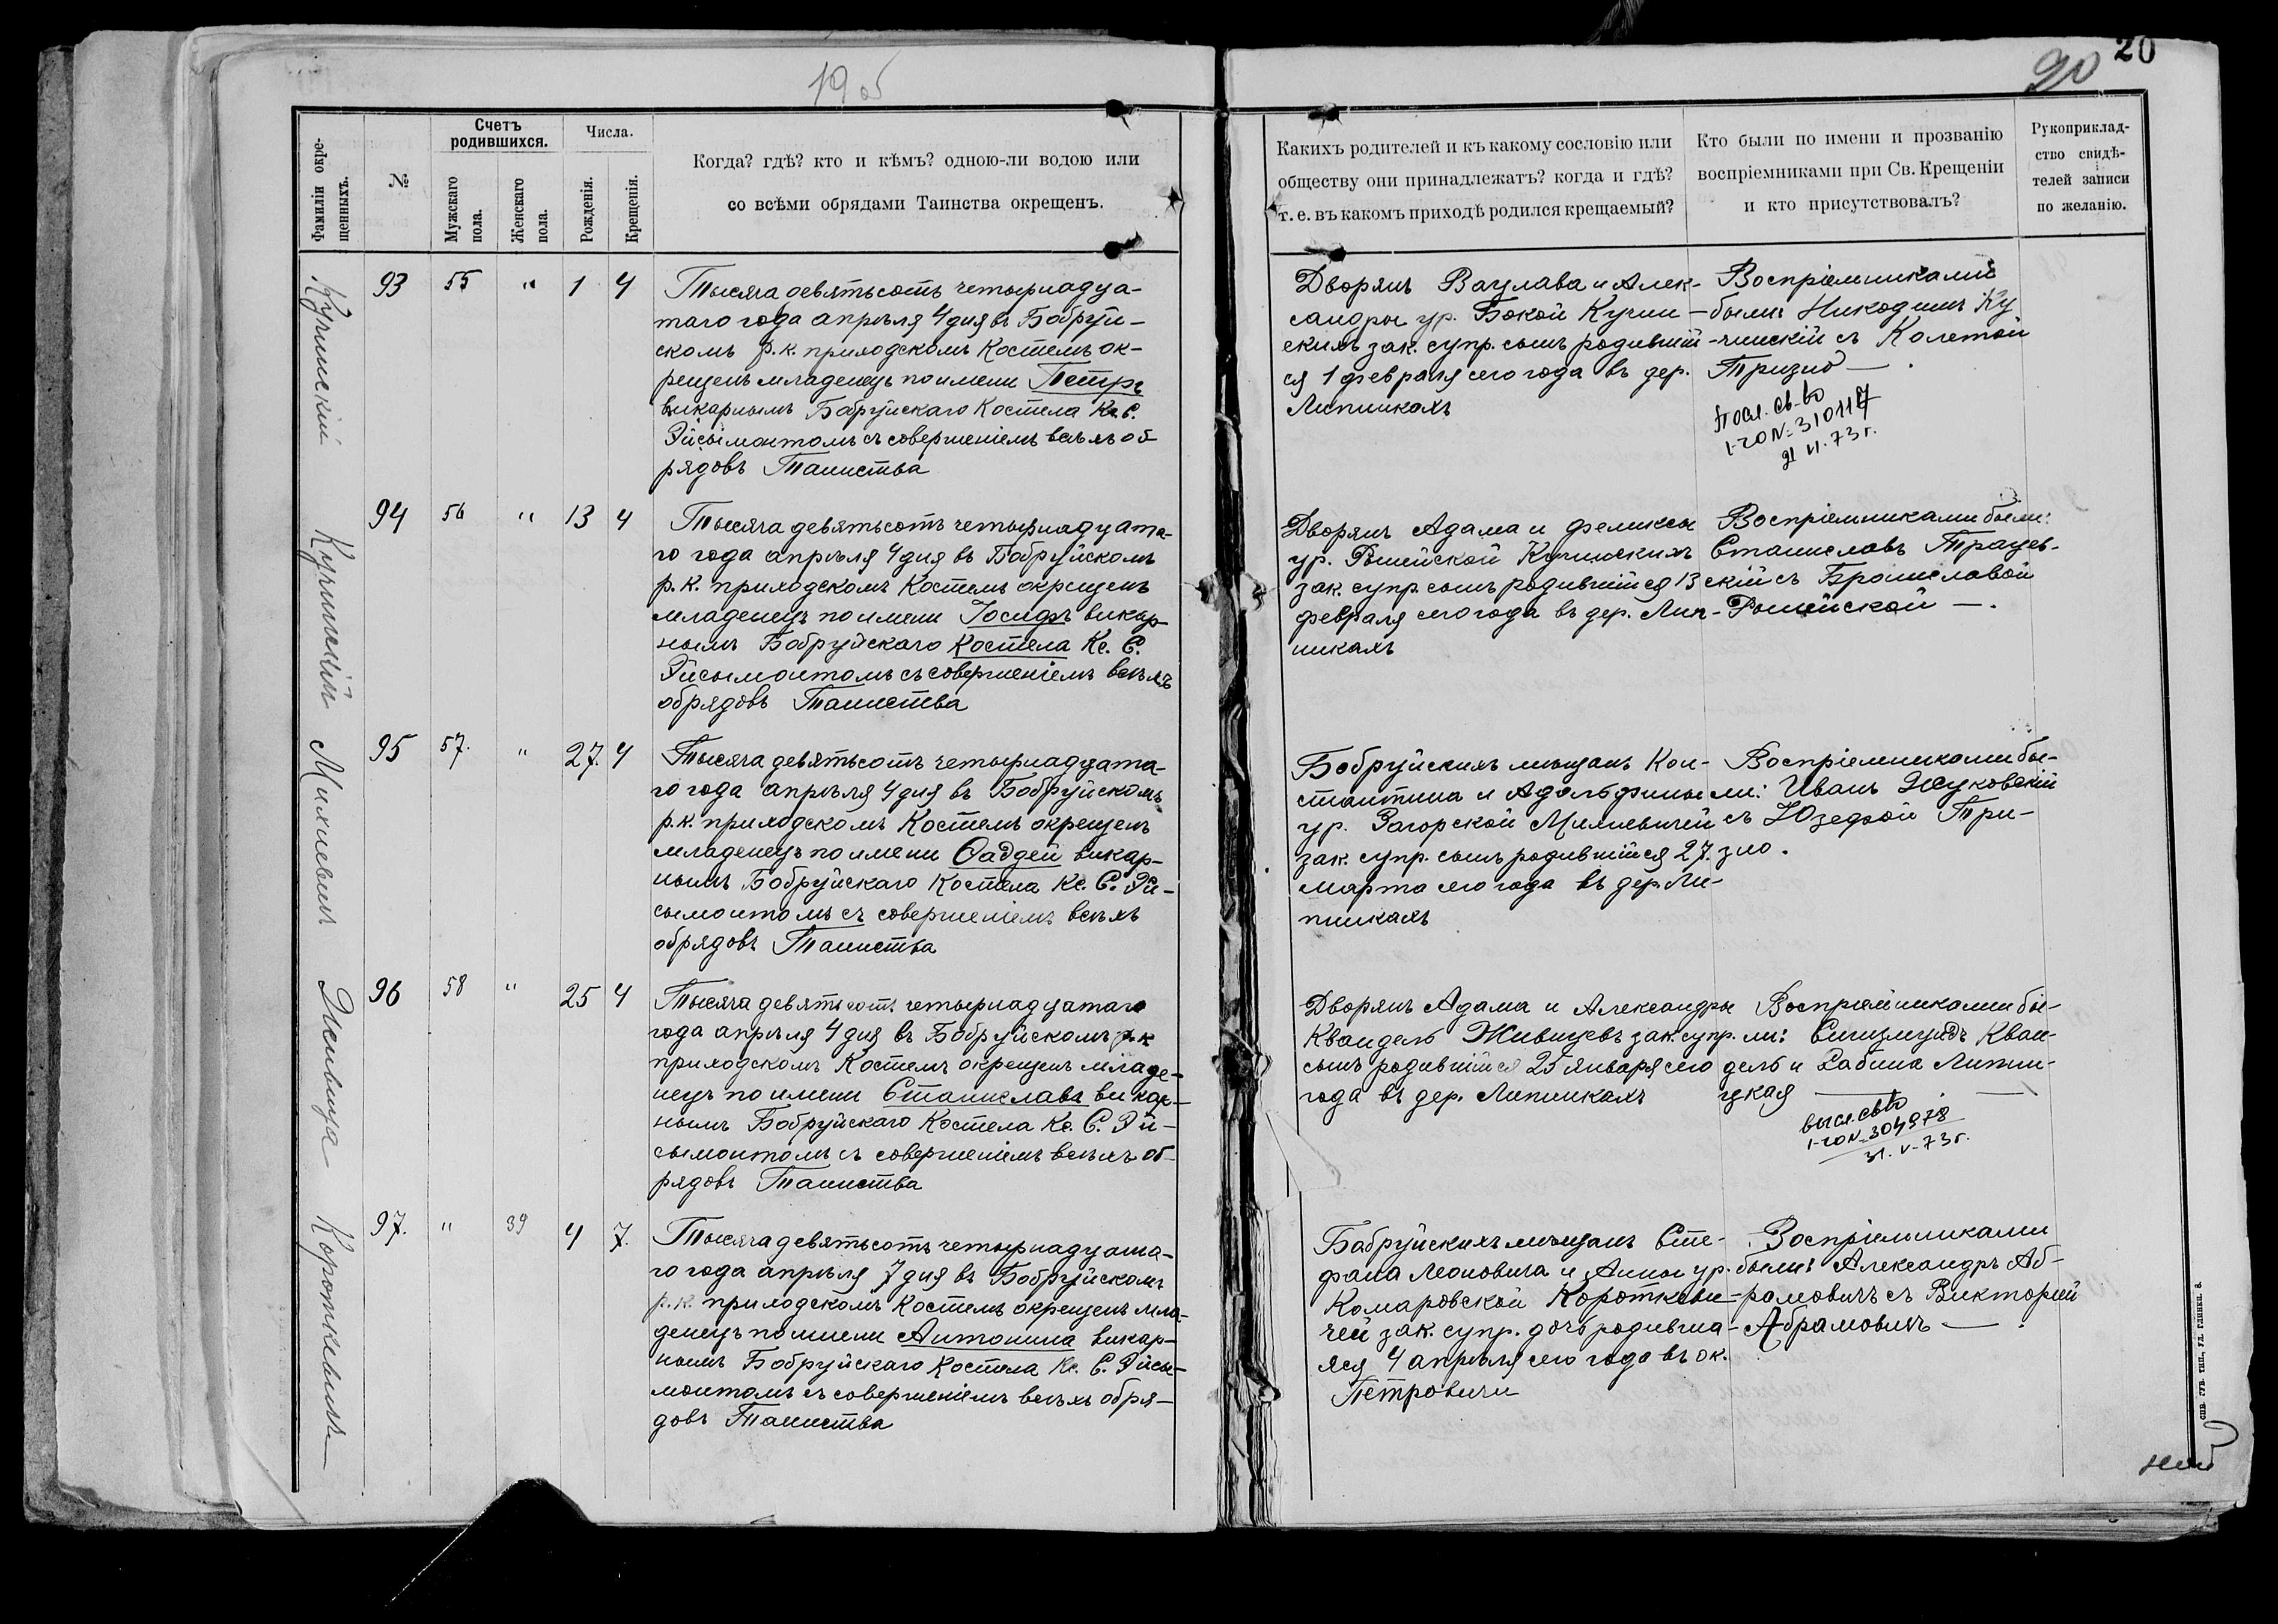 19 об
20
20
Фамиліи окре-
щенныхъ.
№
Счетъ
родившихся.
Мужскаго
пола.
Женскаго
пола.
Числа.
Рожденія.
Крещенія.
Когда? гдѣ? кто и кѣмъ? одною-ли водою или
со всѣми обрядами Таинства окрещенъ.
Какихъ родителей и къ какому сословію или
обществу они принадлежатъ? когда и гдѣ?
т. е. въ какомъ приходѣ родился крещаемый?
Кто были по имени и прозванію
воспріемниками при Св. Крещеніи
и кто присутствовалъ?
Рукоприклад-
ство свидѣ-
телей записи
по желанію.
Кучинскій
93 55 " 1 4
Тысяча девятьсотъ четырнадца-
таго года апрѣля 4 дня въ Бобруй-
скомъ р.к. приходскомъ Костелѣ ок-
рещенъ младенецъ по имени Петръ
викарнымъ Бобруйскаго Костела Кс. С.
Эйсымонтомъ съ совершеніемъ всѣхъ об-
рядовъ Таинства
Дворянъ Вацлава и Алек-
сандры ур. Бокой Кучин-
скихъ зак. супр. сынъ родившій-
ся 1 февраля сего года въ дер.
Липникахъ
Воспріемниками
были Никодимъ Ку
чинскій съ Колетой
Тризно —.
Посл. св-во
I-го № 310117
21 VI. 73 г.
Кучинскій
94 56 " 13 4
Тысяча девятьсотъ четырнадцата-
го года апрѣля 4 дня въ Бобруйскомъ
р.к. приходскомъ Костелѣ окрещенъ
младенецъ по имени Іосифъ викар-
нымъ Бобруйскаго Костела Кс. С.
Эйсымонтомъ съ совершеніемъ всѣхъ
обрядовъ Таинства
Дворянъ Адама и Феликсы
ур. Рымейской Кучинскихъ
зак. супр. сынъ родившійся 13
февраля сего года въ дер. Лип-
никахъ
Воспріемниками были:
Станиславъ Трацев-
скій съ Брониславой
Рымейской —.
Михневичъ
95 57. " 27. 4
Тысяча девятьсотъ четырнадцата-
го года апрѣля 4 дня въ Бобруйскомъ
р.к. приходскомъ Костелѣ окрещенъ
младенецъ по имени Ѳаддей викар-
нымъ Бобруйскаго Костела Кс. С. Эй-
сымонтомъ съ совершеніемъ всѣхъ
обрядовъ Таинства
Бобруйскихъ мѣщанъ Кон-
стантина и Адольфины
ур. Загорской Михневичей
зак. супр. сынъ родившійся 27.
марта сего года въ дер. Ли-
пникахъ
Воспріемниками бы-
ли: Иванъ Жуковскій
съ Юзефой Три-
зно.
Живица
96 58 " 25 4
Тысяча девятьсотъ четырнадцатаго
года апрѣля 4 дня въ Бобруйскомъ р.к
приходскомъ Костелѣ окрещенъ младе-
нецъ по имени Станиславъ викар-
нымъ Бобруйскаго Костела Кс. С. Эй-
сымонтомъ съ совершеніемъ всѣхъ об-
рядовъ Таинства
Дворянъ Адама и Александры
Квандель Живицевъ зак. супр.
сынъ родившійся 25 января сего
года въ дер. Липникахъ
Воспріемниками бы-
ли: Сигизмундъ Кван-
дель и Сабина Липни-
цкая —
высл. св-во
I-го № 304978
31. V-73 г.
Короткевичъ
97. " 39 4 7.
Тысяча девятьсотъ четырнадцата-
го года апрѣля 7 дня въ Бобруйскомъ
р.к. приходскомъ Костелѣ окрещенъ мла-
денецъ по имени Антонина викар-
нымъ Бобруйскаго Костела Кс. С. Эйсы-
монтомъ съ совершеніемъ всѣхъ обря-
довъ Таинства
Бабруйскихъ мѣщанъ Сте-
фана Леоновича и Анны ур.
Комаровской Короткеви-
чей зак. супр. дочь родивша-
яся 4 апрѣля сего года въ ок.
Петровичи
Воспріемниками
были: Александръ Аб-
рамовичъ съ Викторіей
Абрамовичъ —.